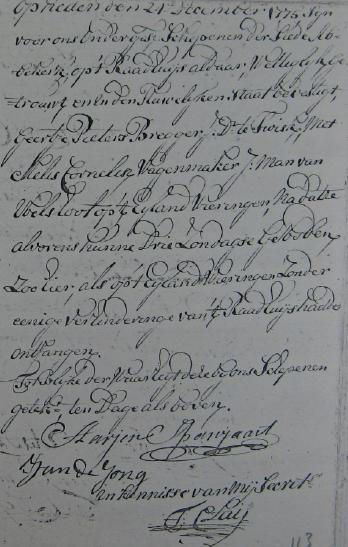 Op heeden den 21 December 1775 Zijn
voor ons Ondergesz Schepenen der Stede Ab-
bekerk, op't Raadhuijs aldaar, Wettiglijk ge-
trouwt en in den Huwelijken staat bevestigt,
Geertje Pieters Bregger J: Dr: te Twisk, Met
Melis Cornelisz Wagenmaker J: Man van
Oosterland op't Eyland Wieringen, Nadatse
alvorens hunne Drie Zondagse Gebooden
Zoo hier als op't Eyland Wieringen Zonder
eenige verhinderinge van't Raadhuijs hadde
ontfangen.
T'oirkonde der Waarheijt deeze bij ons Schepenen
geteke: ten Dage als boven.
Jan de Jong
in kennisse van mij Secrets.
113